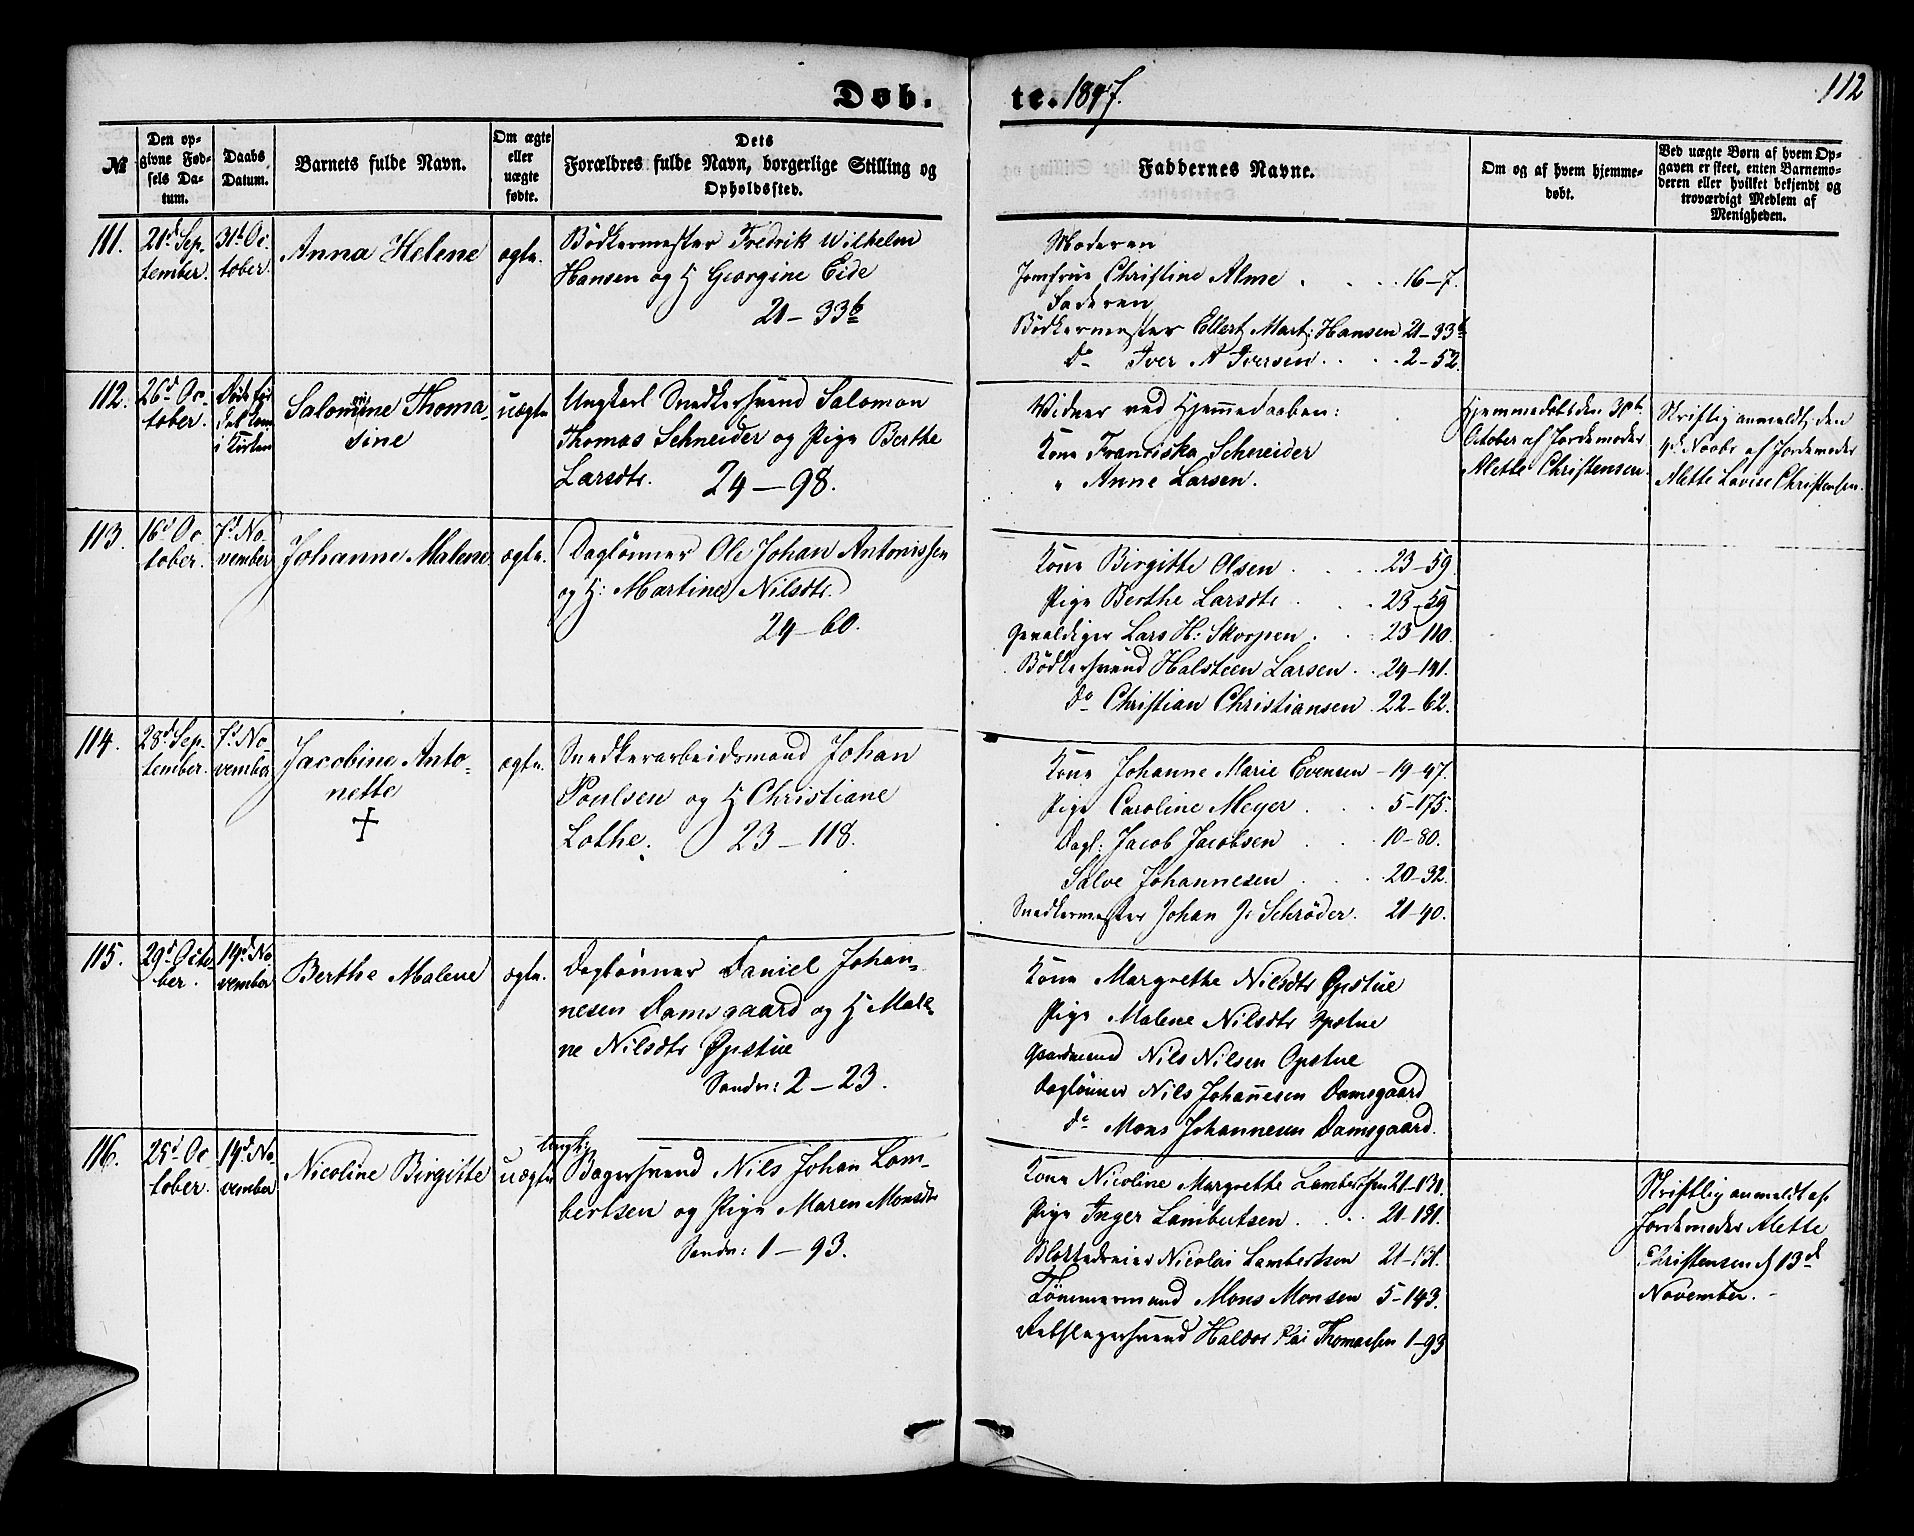 Døb.
te. 1847.
112
№
Den op-
givne Fød-
sels Da-
tum.
Daabs
Datum.
Barnets fulde Navn.
Om ægte
eller
uægte
fødte.
Dets
Forældres fulde Navn, borgerlige Stilling og
Opholdssted.
Faddernes Navne.
Om og af hvem hjemme-
døbt.
Ved uægte Børn af hvem Op-
gaven er skeet, enten Barnemo-
deren eller hvilket bekjendt og
troværdigt Medlem af
Menigheden.
111.
21d Sep-
tember.
31te Oc-
tober.
Anna Helene
ægte.
Bødkermester Fredrik Wilhelm
Hansen og H Georgine Eide
21-33b
Moderen
Jomfrue Christine Alme . . . . 16-7.
Faderen
Bødkermester Ellert Mart: Hansen 21-33b
Do Iver A Iversen . . . 2-52.
112.
26d Oc-
tober.
Døde før
det kom
i Kirken
Salomine Thoma-
sine
uægte
Ungkarl Snedkersvend Salomon
Thomas Schneider og Pige Berthe
Larsdtr. 24-98.
Vidner ved Hjemmedaaben:
Kone Franciska Schneider
" Anne Larsen.
Hjemmedøbt den 30te
October af Jordemoder
Alette Christensen.
Skriftlig anmeldt den
4d Novbr af Jordemoder
Alette Lovise Christensen.
113.
16d Oc-
tober.
7d No-
vember
Johanne Malene
ægte.
Daglønner Ole Johan Antonissen
og H: Martine Nilsdtr.
24-60.
Kone Birgitte Olsen . . . . 23-59.
Pige Berthe Larsdtr . . . 23-59
Gevaldiger Lars H: Skorpen . . 23-110.
Bødkersvend Halsteen Larsen . . 24-141.
Do Christian Christiansen . 22-62.
114.
28d Sep-
tember.
7d No-
vember
Jacobine Anto-
nette
+
ægte.
Snedkerarbeidsmand Johan
Poulsen og H Christiane
Lothe. 23-118.
Kone Johanne Marie Evensen - 19-47.
Pige Caroline Meyer . . . 5-175.
Dagl: Jacob Jacobsen . . . 10-80.
Salve Johannesen . . . 20-32.
Snedkermester Johan J: Schrøder. 21-40.
115.
29d Octo-
ber.
14d No-
vember
Berthe Malene
ægte.
Daglønner Daniel Johan-
nesen Damsgaard og H Male-
ne Nilsdtr Øpstue
Sandv: 2-23.
Kone Margrethe Nilsdtr Øpstue
Pige Malene Nilsdtr Opstue
Gaardmand Nils Nilsen Opstue
Daglønner Nils Johannesen Damsgaard
do Mons Johannesen Damsgaard.
116.
25d Oc-
tober.
14d No-
vember
Nicoline Birgitte
uægte
Ungk:
Bagersvend Nils Johan Lam-
bertsen og Pige Maren Monsdtr
Sandv: 1-93.
Kone Nicoline Margrethe Lambertsen 21-131.
Pige Inger Lambertsen . . . . 21-131.
Blokkedreier Nicolai Lambertsen 21-131.
Tømmermand Mons Monsen 5-143.
Rebslagersvend Haldor Thomassen 1-93
Skriftlig anmeldt af
Jordemoder Alette
Christensen d 13d
November. -